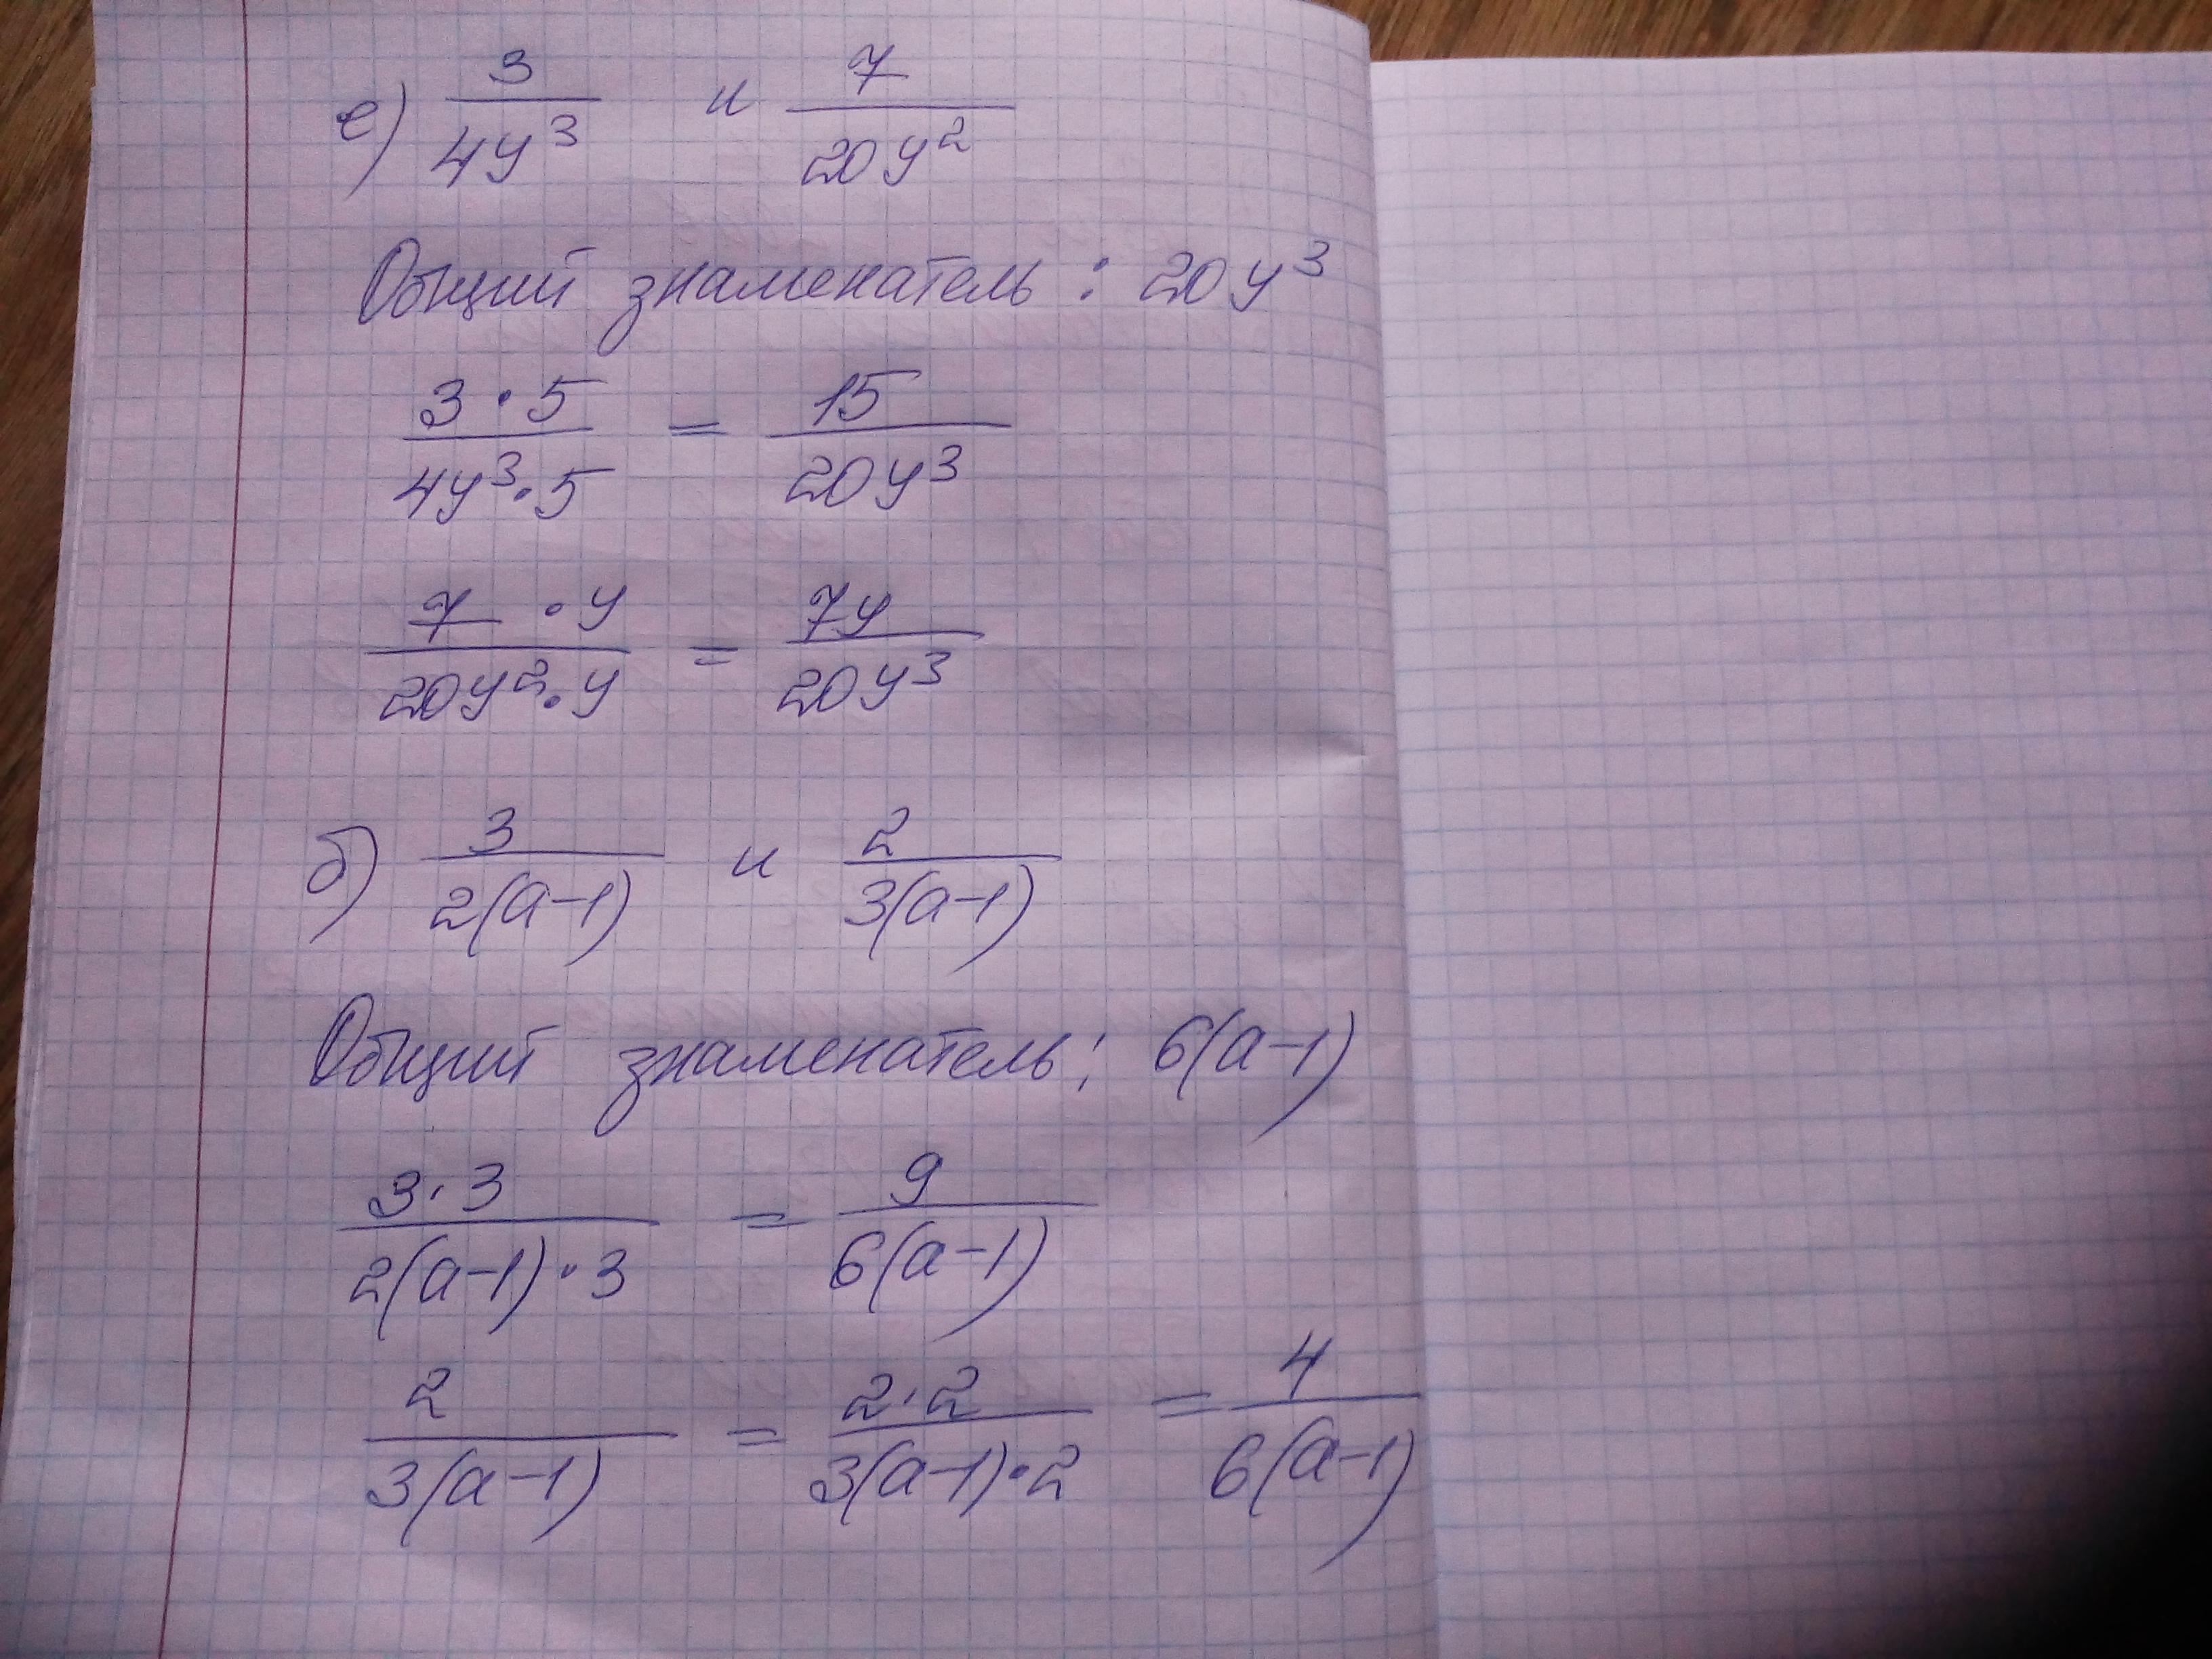 е) 3/(4y³) и 7/(20y²)
Общий знаменатель: 20y³
(3·5)/(4y³·5) = 15/(20y³)
(7·y)/(20y²·y) = 7y/(20y³)
б) 3/(2(a-1)) и 2/(3(a-1))
Общий знаменатель: 6(a-1)
(3·3)/(2(a-1)·3) = 9/(6(a-1))
2/(3(a-1)) = (2·2)/(3(a-1)·2) = 4/(6(a-1))